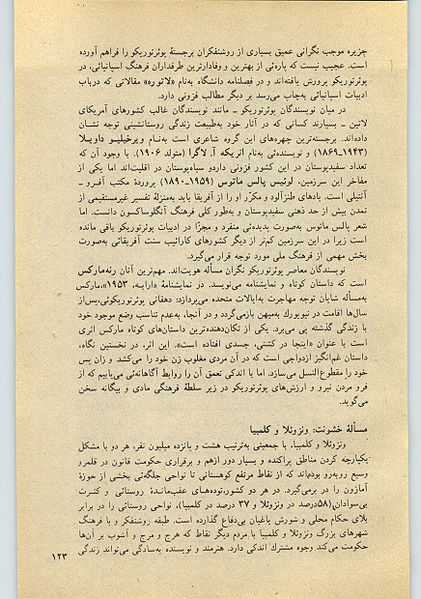 جزیره موجب نگرانی عمیق بسیاری از روشنفکران برجستهٔ پوئرتوریکو را فراهم آورده
است. عجیب نیست که پاره‌ئی از بهترین و وفادارترین طرفداران فرهنگ اسپانیائی، در
پوئرتوریکو پرورش یافته‌اند و در فصلنامه دانشگاه به‌نام «لاتوره» مقالاتی که درباب
ادبیات اسپانیائی به‌چاپ می‌رسد بر دیگر مطالب فزونی دارد.
در میان نویسندگان پوئرتوریکو ـ مانند نویسندگان غالب کشورهای آمریکای
لاتین ـ بسیارند کسانی که در آثار خود به‌طبیعت زندگی روستانشینی توجه نشان
داده‌اند. برجسته‌ترین چهره‌های این گروه شاعری است به‌نام ویرخیلیو داویلا
(۱۹۴۳ـ۱۸۶۹) و نویسنده‌ئی به‌نام انریکه آ. لاگرا (متولد ۱۹۰۶). با وجود آن که
تعداد سفیدپوستان در این کشور فزونی داردو سیاه‌پوستان در اقلیت‌اند اما یکی از
مفاخر این سرزمین، لوئیس پالس ماتوس (۱۹۵۹ـ۱۸۹۰) پروردهٔ مکتب آفـرو ـ
آنتیلی است. یادهای طنزآلود و مکرّر او را از آفریقا باید به‌منزلهٔ تفسیر غیرمستقیمی از
تمدن بیش از حد ذهنی سفیدپوستان و به‌طور کلی فرهنگ آنگلوساکسون دانست. اما
شعر پالس ماتوس به‌صورت پدیده‌ئی منفرد و مجزّا در ادبیات پوئرتوریکو باقی مانده
است زیرا در این سرزمین کم‌تر از دیگر کشورهای کارائیب سنت آفریقائی به‌صورت
بخش مهمی از فرهنگ ملی مورد توجه قرار می‌گیرد.
نویسندگان معاصر پوئرتوریکو نگران مسأله هویت‌اند. مهم‌ترین آنان رنه‌مارکس
است که داستان کوتاه و نمایشنامه می‌نویسد. در نمایشنامهٔ «ارابه، ۱۹۵۳»،مارکس
به‌مسأله شایان توجه مهاجرت به‌ایالات متحده می‌پردازد: دهقانی پوئرتوریکوئی،پس‌از
سال‌ها اقامت در نیویورك به‌میهن بازمی‌گردد و در آنجا، به‌عدم تناسب وضع موجود خود
با زندگی گذشته پی می‌برد. یکی از تکان‌دهنده‌ترین داستان‌های کوتاه مارکس اثری
است با عنوان «اینجا در کشتی، جسدی افتاده است». این اثر، در نخستین نگاه،
داستان غم‌انگیز ازدواجی است که در آن مردی مغلوب زن خود را می‌کشد و زان پس
خود را مقطوع‌النسل می‌سازد. اما با اندکی تعمق آن را روابط آگاهانه‌ئی می‌یابیم که از
فرو مردن نیرو و ارزش‌های پوئرتوریکو در زیر سلطهٔ فرهنگی مادی و بیگانه سخن
می‌گوید.
مسألهٔ خشونت: ونزوئلا و کلمبیا
ونزوئلا و کلمبیا، با جمعیتی به‌ترتیب هشت و پانزده میلیون نفر، هر دو با مشکل
یکپارچه کردن مناطق پراکنده و بسیار دور ازهم و برقراری حکومت قانون در قلمرو
وسیع روبه‌رو بوده‌اند که از نقاط مرتفع کوهستانی تا نواحی جلگه‌ئی بخشی از حوزهٔ
آمازون را در برمی‌گیرد. در هر دو کشور،توده‌هـای عقب‌مانـدهٔ روستائی و کثـرت
بی‌سوادان،(۵۸درصد در ونزوئلا و ۳۷ درصد در کلمبیا)، نواحی روستائی را در برابر
بلای حکام محلی و شورش یاغیان بی‌دفاع گذارده است. طبقه روشنفکر و با فرهنگ
شهرهای بزرگ ونزوئلا و کلمبیا با مردم دیگر نقاط که هرج و مرج و آشوب بر آن‌ها
حکومت می‌کند وجوه مشترك اندکی دارد. هنرمند و نویسنده به‌سادگی می‌تواند زندگی
۱۲۳